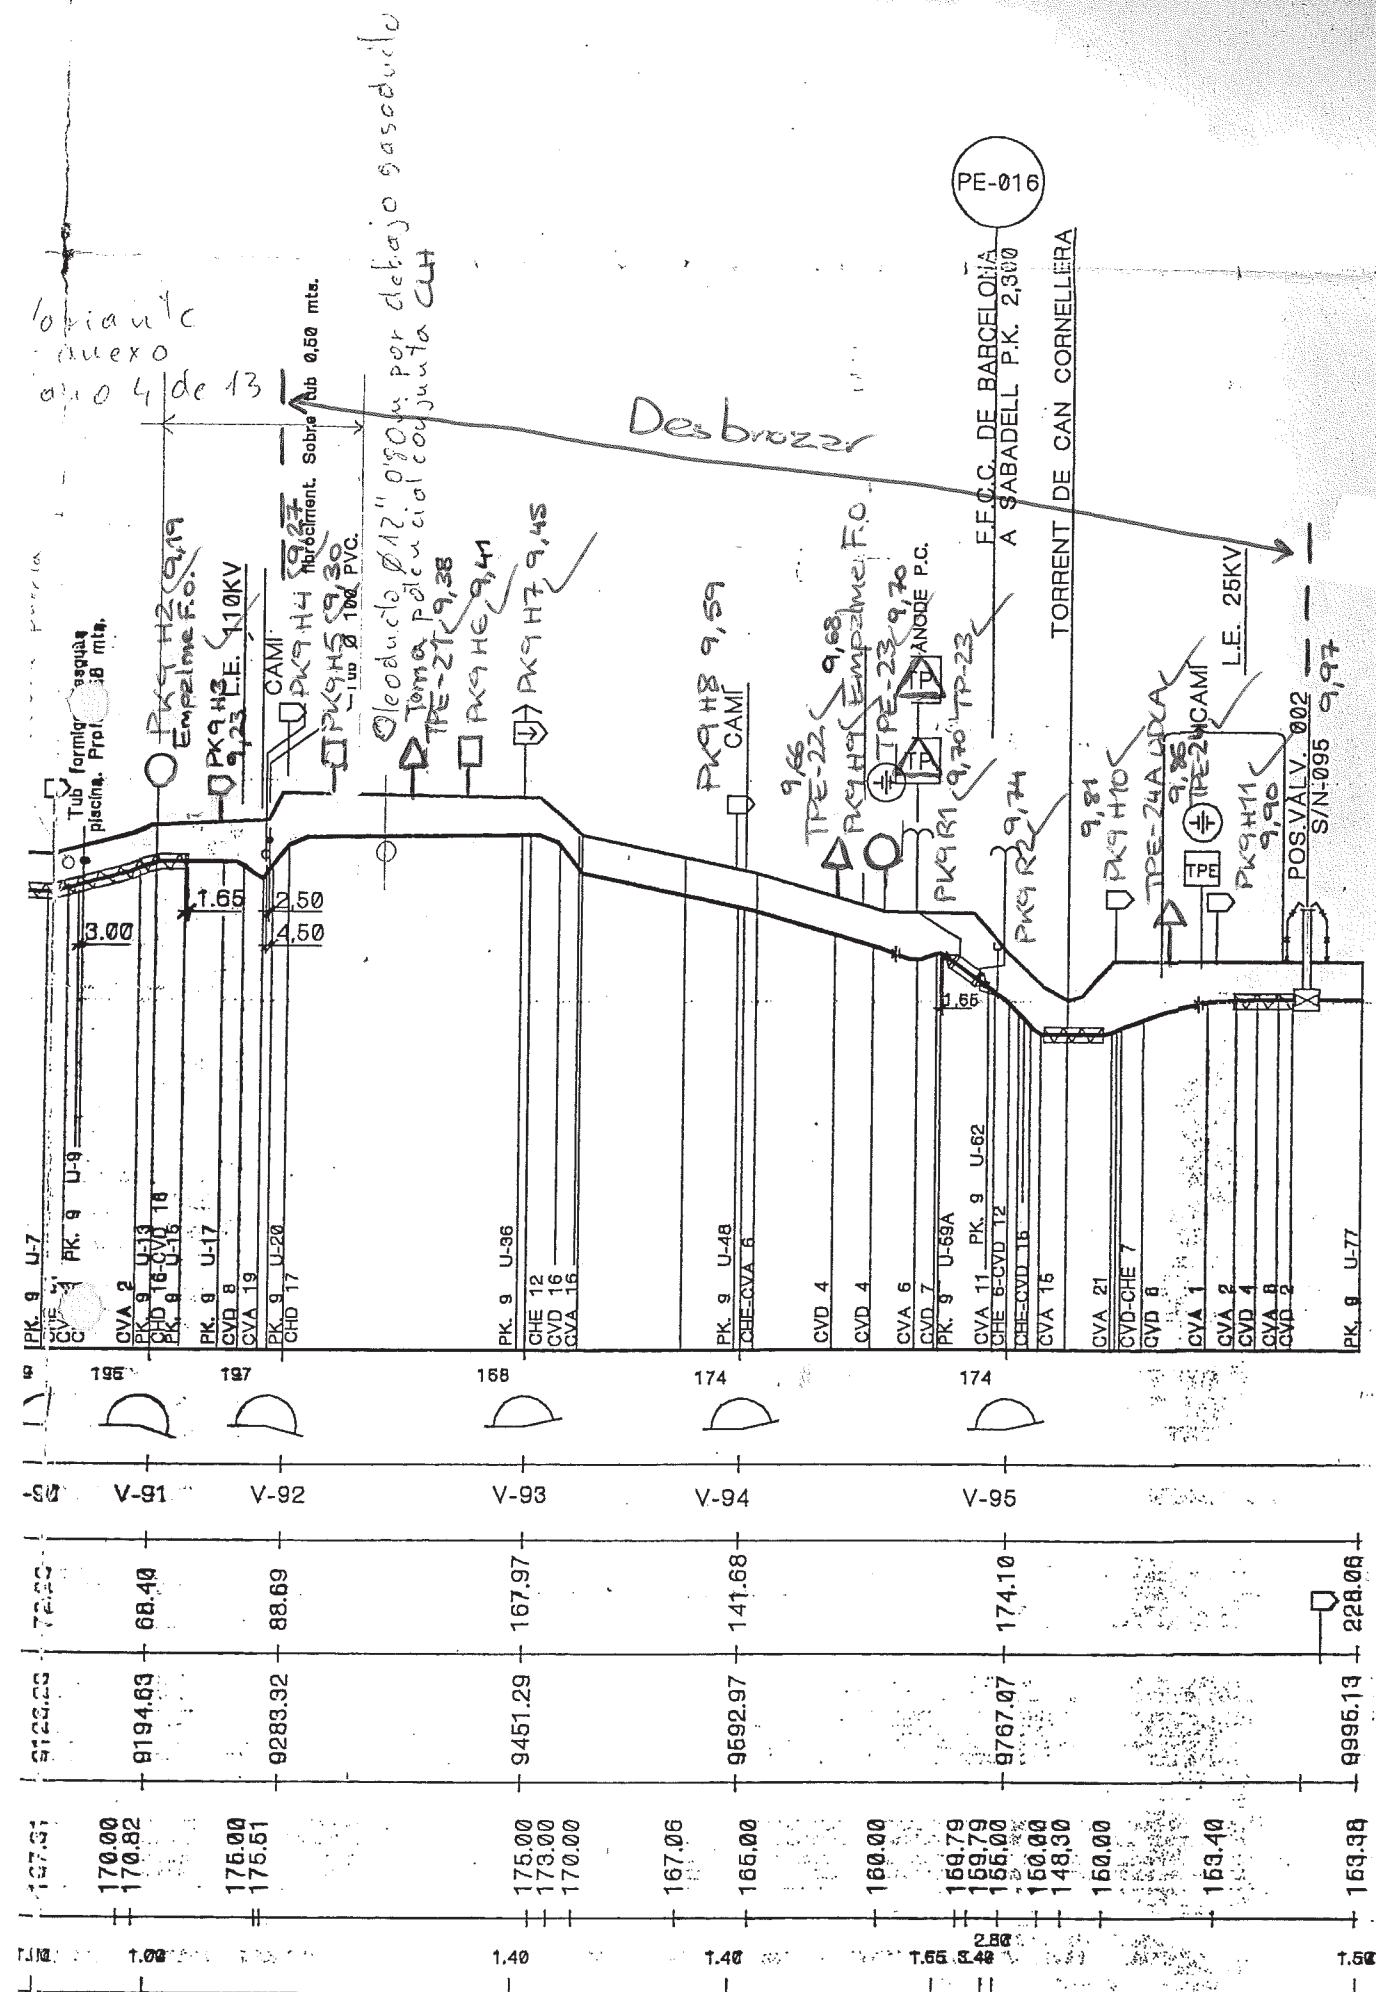 PE-016
F.F.C.C. DE BARCELONA
A SABADELL P.K. 2,300
TORRENT DE CAN CORNELLERA
anexo
4 de 13
Desbrozar
Oleoducto Ø 12" 0'80m por debajo gasoducto
Toma potencial conjunta CLH
fibrociment. Sobre tub 0,50 mts.
Ø 100 PVC.
Tub formigo
piscina.
PK9 H2 9,19
Empalme F.O.
PK9 H3
9,23
L.E. 110KV
CAMI
PK9 H4 9,27
PK9 H5 9,30
TPE-21 9,38
PK9 H6 9,41
PK9 H7 9,45
PK9 H8 9,59
CAMI
9,66
TPE-22 9,68
PK9 H9 Empalme F.O.
TPE-23 9,70
TP
ANODE P.C.
TP
9,70 TP-23
PK9 R1
PK9 R2 9,74
9,81
PK9 H10
TPE-24A UDCA
9,86
TPE-24 CAMI
TPE
PK9 H11
9,90
L.E. 25KV
POS.VALV. 002
S/N-095 9,97
3.00
1.65
2,50
4,50
1.65
PK. 9 U-7
PK. 9 U-9
CVA 2
PK. 9 U-13
CHD 16-CVD 16
PK. 9 U-15
PK. 9 U-17
CVD 8
CVA 19
PK. 9 U-20
CHD 17
PK. 9 U-36
CHE 12
CVD 16
CVA 16
PK. 9 U-48
CHE-CVA 6
CVD 4
CVD 4
CVA 6
CVD 7
PK. 9 U-59A
CVA 11 PK. 9 U-62
CHE 6-CVD 12
CHE-CVD 16
CVA 15
CVA 21
CVD-CHE 7
CVD 6
CVA 1
CVA 2
CVD 4
CVA 8
CVD 2
PK. 9 U-77
196 197 168 174 174
-90 V-91 V-92 V-93 V-94 V-95
68.40 88.69 167.97 141.68 174.10 228.06
9194.63 9283.32 9451.29 9592.97 9767.07 9995.13
170.00 170.82 175.00 175.51 175.00 173.00 170.00 167.06 165.00 160.00 159.79 159.79 155.00 150.00 148.30 150.00 153.40 153.38
2.80
1.00 1.40 1.40 1.65 3.40 1.50